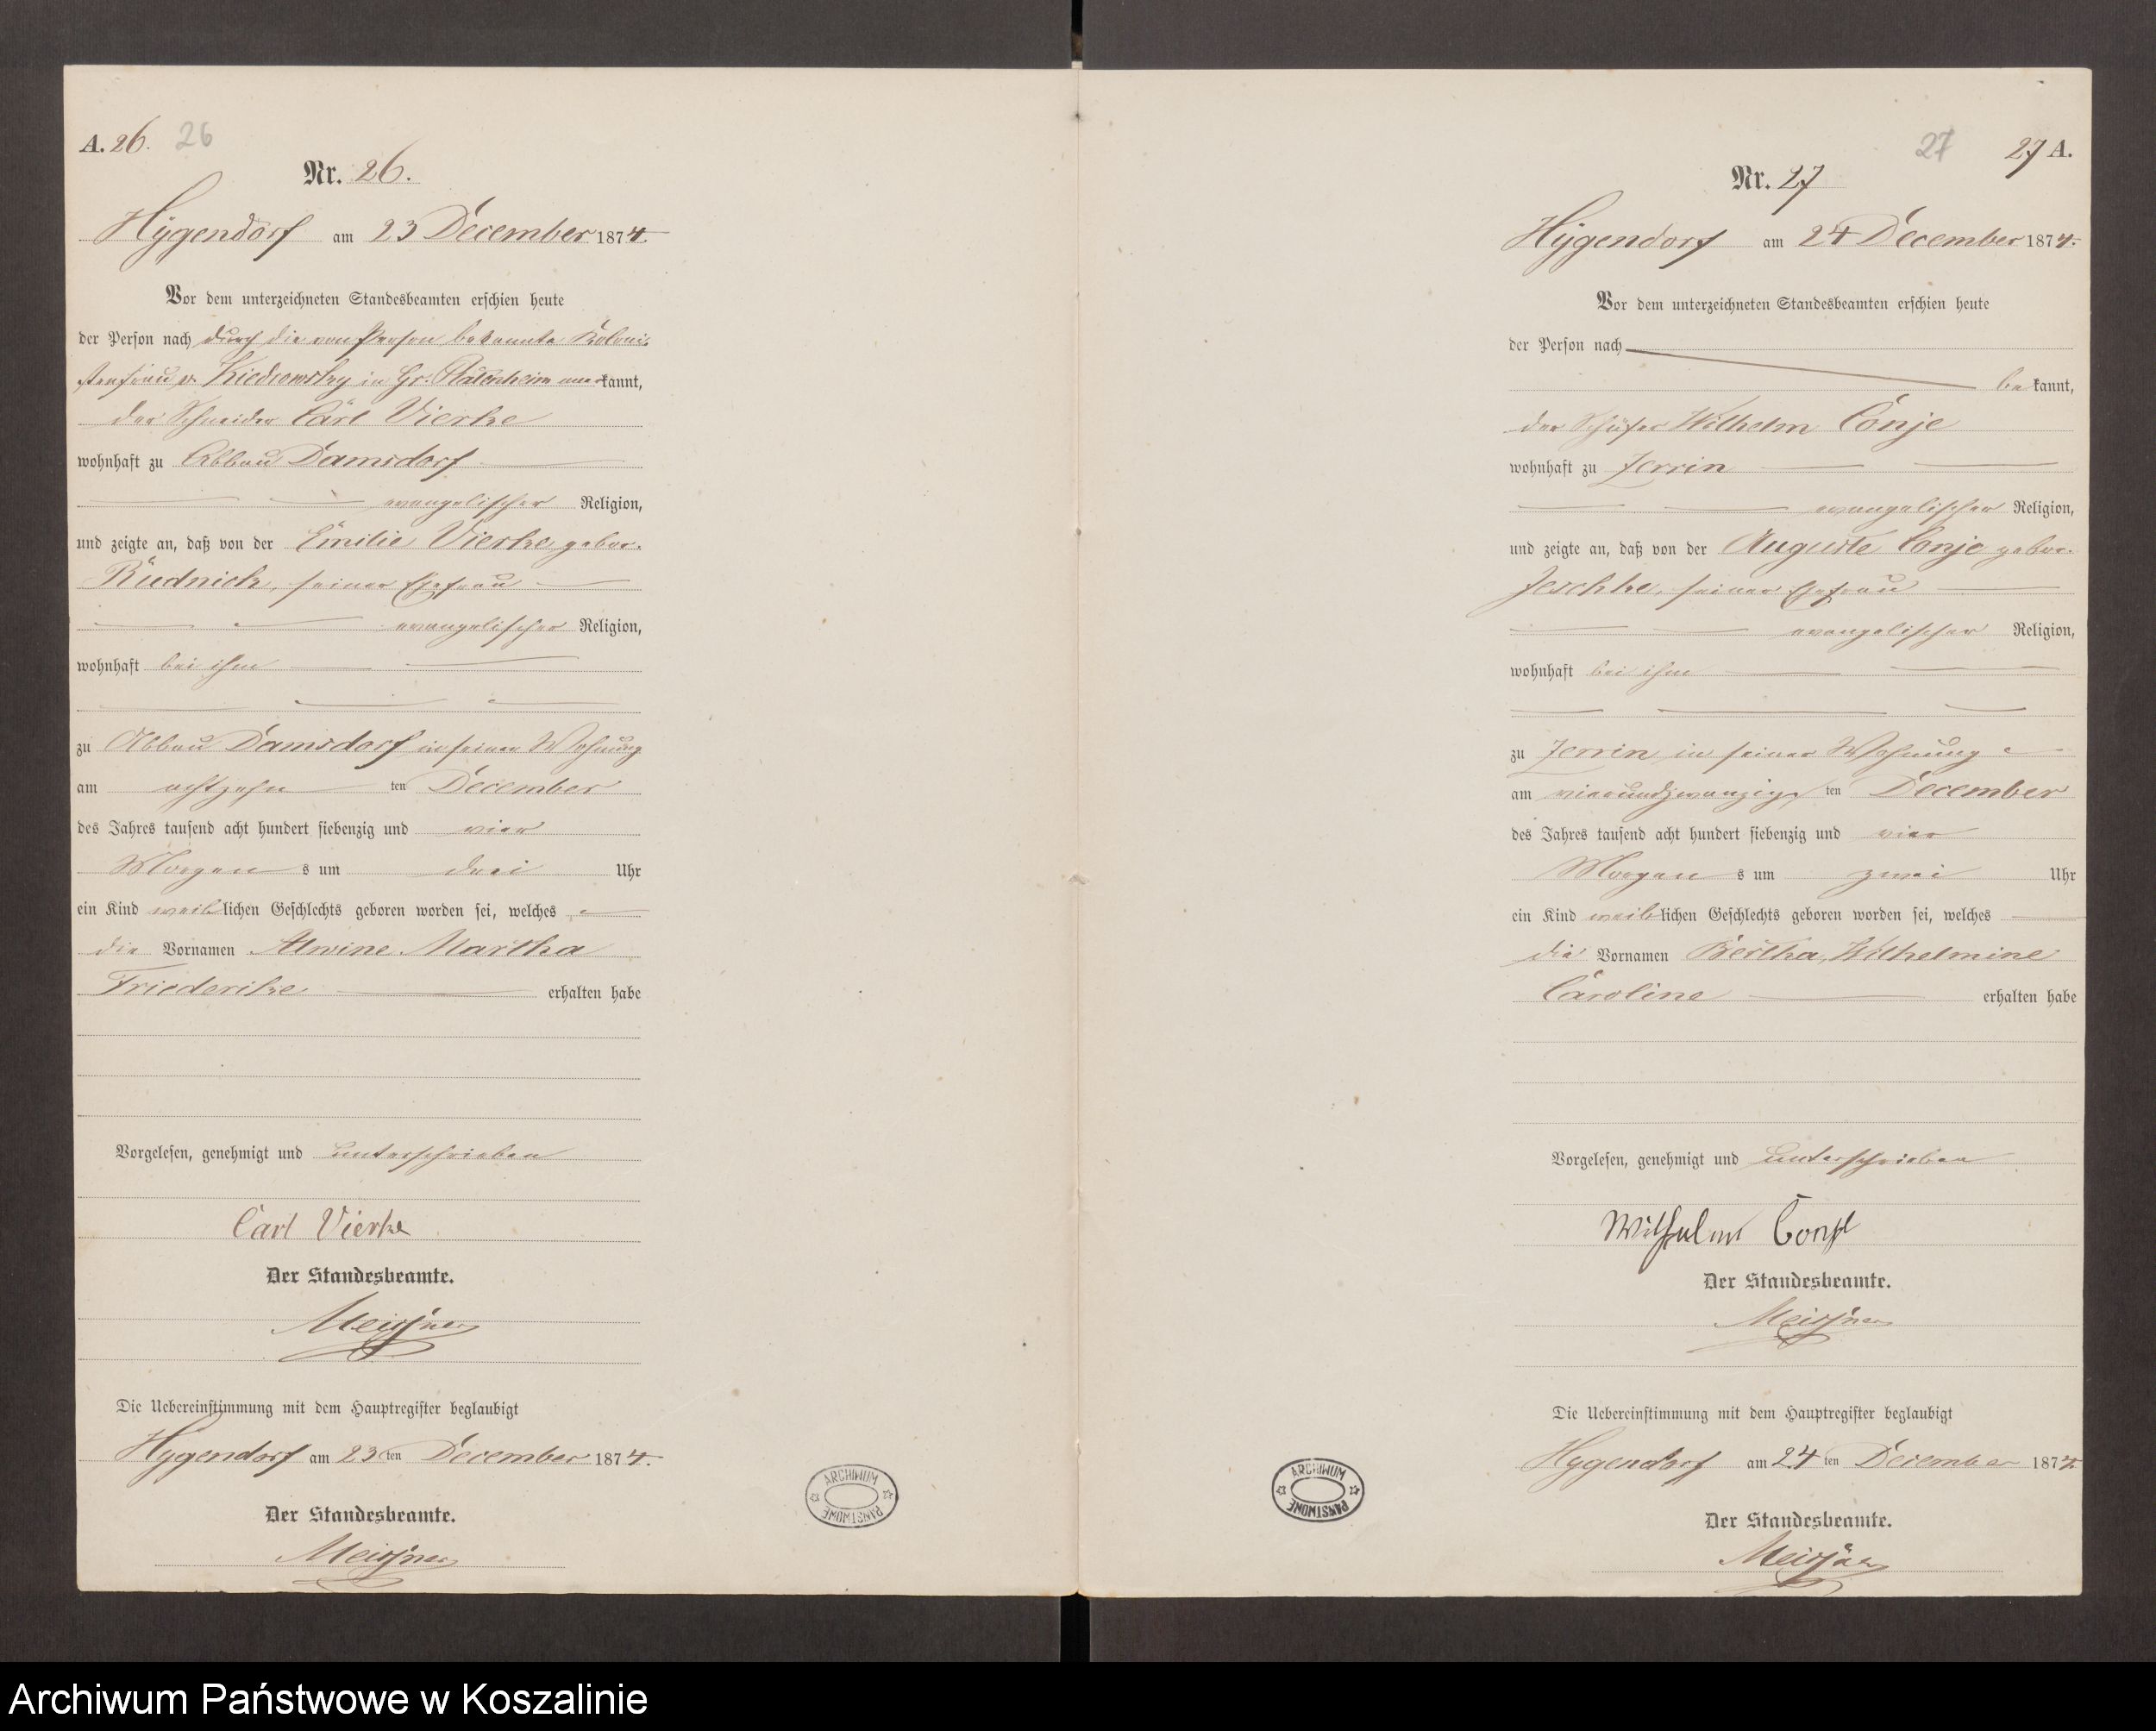 A. 26. 26
Nr. 26.
Hygendorf am 23 December 1874.
Vor dem unterzeichneten Standesbeamten erschien heute
der Person nach durch die von Person bekannte Koloni-
stenfrau v. Kiedrowsky in Gr. Platenheim anerkannt,
der Schneider Carl Vierke
wohnhaft zu Abbau Damsdorf
evangelischer Religion,
und zeigte an, daß von der Emilie Vierke gebor.
Rudnick, seiner Ehefrau
evangelischer Religion,
wohnhaft bei ihm
zu Abbau Damsdorf in seiner Wohnung
am achtzehnten December
des Jahres tausend acht hundert siebenzig und vier
Morgens um drei Uhr
ein Kind weiblichen Geschlechts geboren worden sei, welches
die Vornamen Alwine Martha
Friederike erhalten habe
Vorgelesen, genehmigt und unterschrieben
Carl Vierke
Der Standesbeamte.
Meissner
Die Uebereinstimmung mit dem Hauptregister beglaubigt
Hygendorf am 23ten December 1874.
Der Standesbeamte.
Meissner
ARCHIWUM PAŃSTWOWE
27 27 A.
Nr. 27
Hygendorf am 24 December 1874.
Vor dem unterzeichneten Standesbeamten erschien heute
der Person nach
bekannt,
der Schäfer Wilhelm Conje
wohnhaft zu Zerrin
evangelischer Religion,
und zeigte an, daß von der Auguste Conje gebor.
Jeschke, seiner Ehefrau
evangelischer Religion,
wohnhaft bei ihm
zu Zerrin in seiner Wohnung
am vierundzwanzigsten December
des Jahres tausend acht hundert siebenzig und vier
Morgens um zwei Uhr
ein Kind weiblichen Geschlechts geboren worden sei, welches
die Vornamen Bertha, Wilhelmine
Caroline erhalten habe
Vorgelesen, genehmigt und unterschrieben
Wilhelm
Der Standesbeamte.
Meissner
Die Uebereinstimmung mit dem Hauptregister beglaubigt
Hygendorf am 24ten December 1874.
Der Standesbeamte.
Meissner
ARCHIWUM PAŃSTWOWE
Archiwum Państwowe w Koszalinie